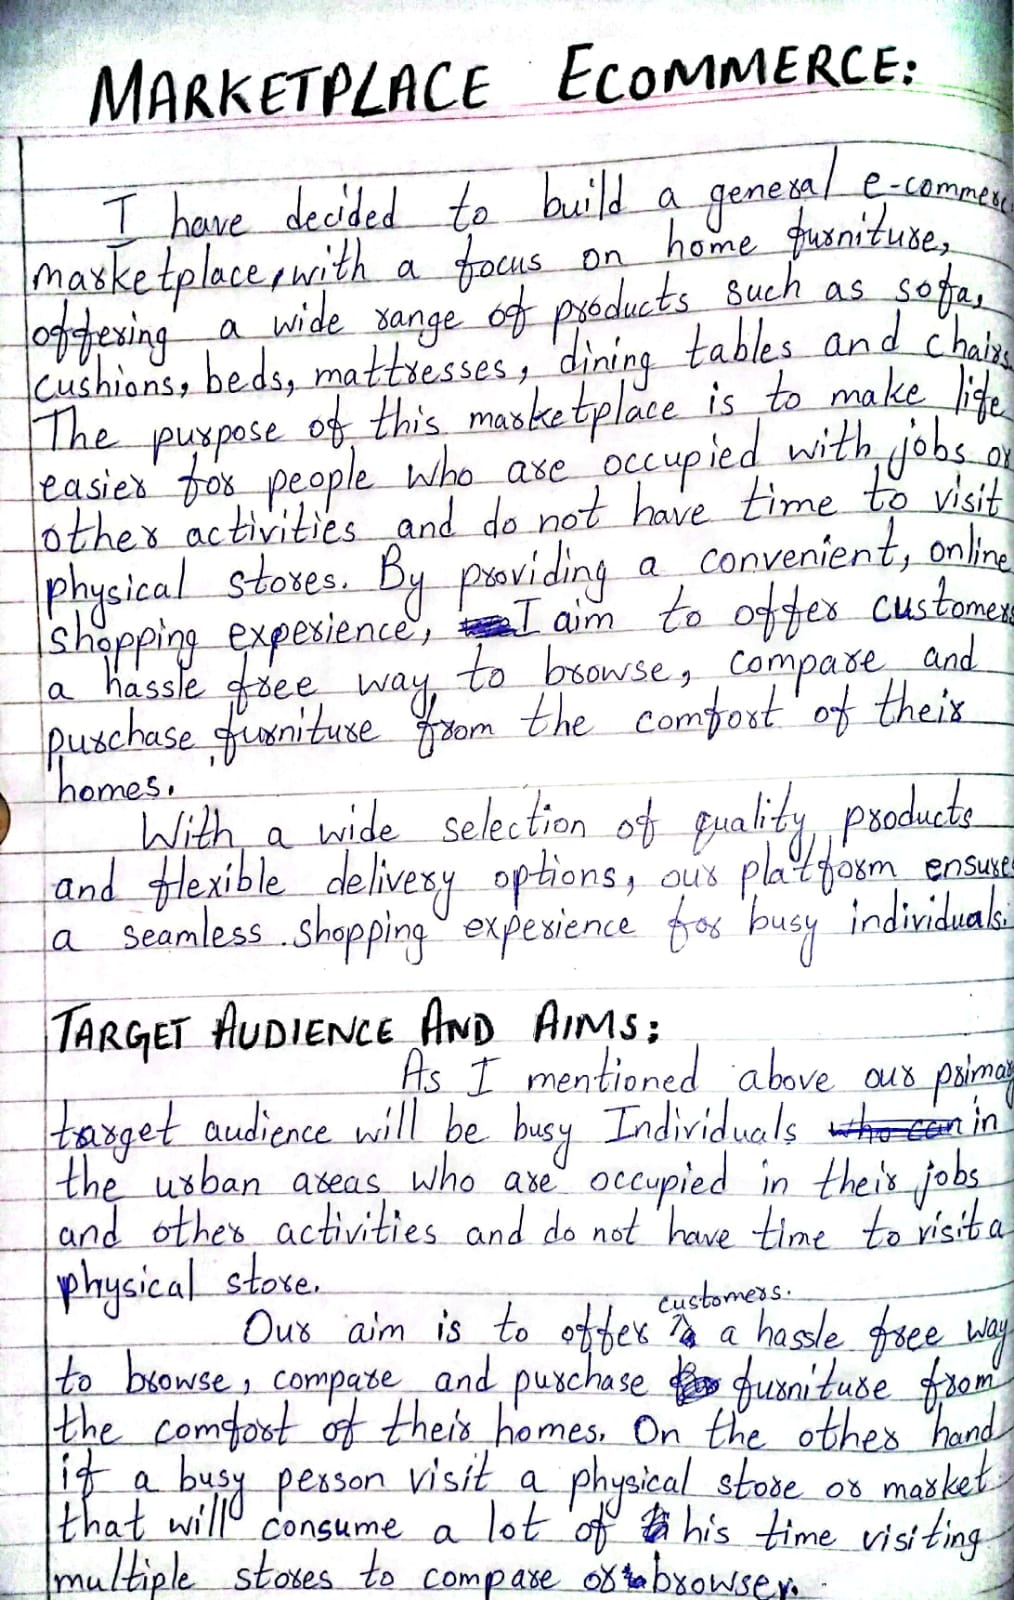 MARKETPLACE ECOMMERCE:
I have decided to build a general e-commerc
marketplace, with a focus on home furniture,
offering a wide range of products such as sofa,
cushions, beds, mattresses, dining tables and chairs.
The purpose of this marketplace is to make life
easier for people who are occupied with jobs or
other activities and do not have time to visit
physical stores. By providing a convenient, online
shopping experience, I aim to offer customers
a hassle free way to browse, compare and
purchase furniture from the comfort of their
homes.
With a wide selection of quality products
and flexible delivery options, our platform ensures
a seamless shopping experience for busy individuals.
TARGET AUDIENCE AND AIMS:
As I mentioned above our primary
target audience will be busy Individuals who can in
the urban areas who are occupied in their jobs
and other activities and do not have time to visit a
physical store.
customers.
Our aim is to offer a hassle free way
to browse, compare and purchase furniture from
the comfort of their homes. On the other hand
if a busy person visit a physical store or market
that will consume a lot of his time visiting
multiple stores to compare or browser.